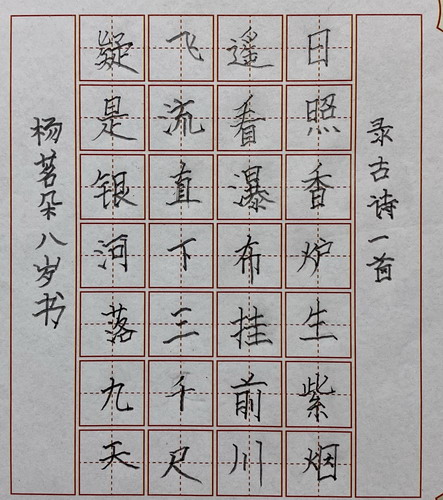 录古诗一首
日照香炉生紫烟
遥看瀑布挂前川
飞流直下三千尺
疑是银河落九天
杨茗朵八岁书